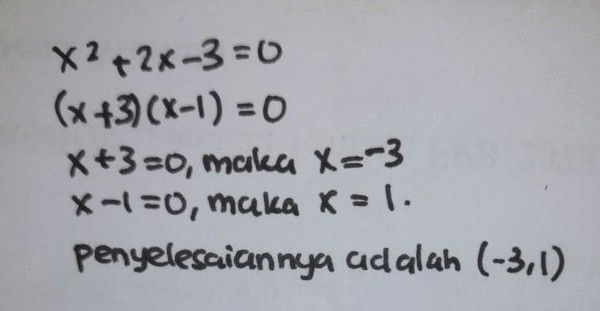 x² + 2x - 3 = 0
(x+3)(x-1) = 0
x+3=0, maka x=-3
x-1=0, maka x = 1.
penyelesaiannya adalah (-3,1)